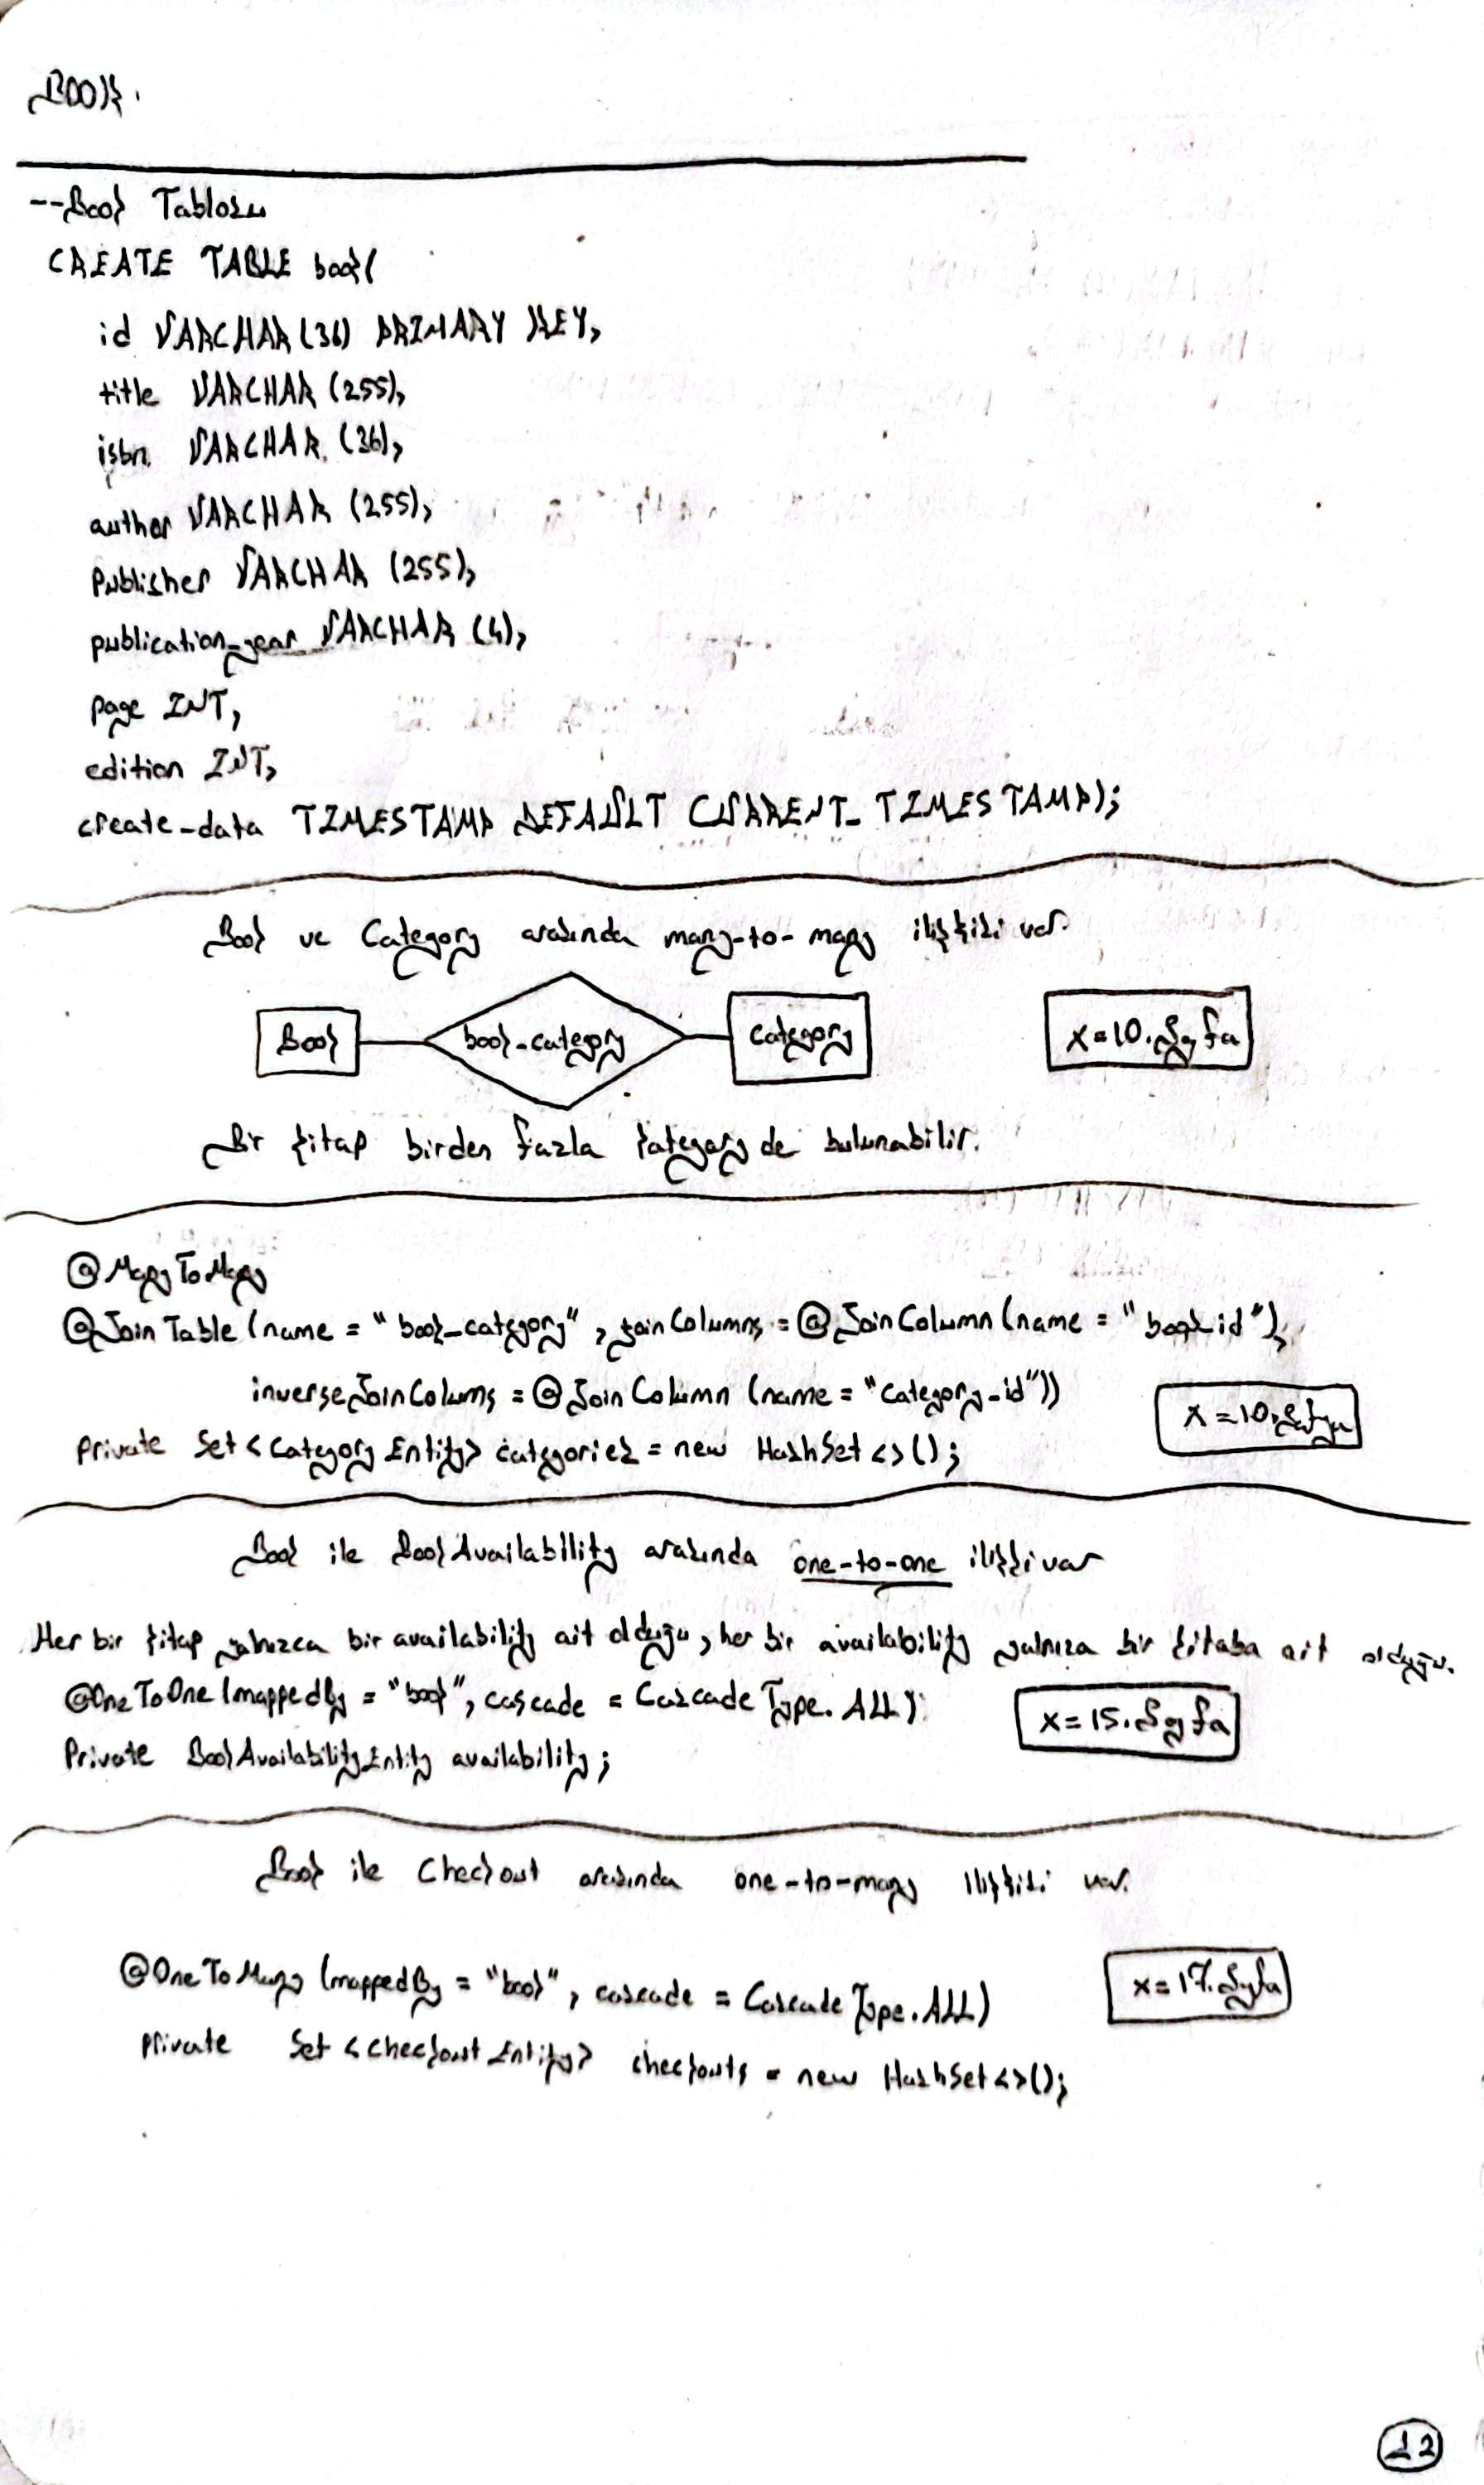 Book.
--Book Tablosu
CREATE TABLE book(
id VARCHAR(36) PRIMARY KEY,
title VARCHAR (255),
isbn VARCHAR (36),
author VARCHAR (255),
Publisher VARCHAR (255),
publication_year VARCHAR (4),
page INT,
edition INT,
create-data TIMESTAMP DEFAULT CURRENT_TIMESTAMP);
Book ve Category arasında many-to-many ilişkisi var.
Book book-category Category X=10.Syfa
Bir kitap birden fazla kategory de bulunabilir.
@ManyToMany
@JoinTable (name = "book_category", joinColumns = @JoinColumn(name = "book_id"),
inverseJoinColums = @JoinColumn (name = "category-id"))
X=10.Sayfa
Private Set<CategoryEntity> categories = new HashSet<>();
Book ile BookAvailability arasında one-to-one ilişki var
Her bir kitap yalnızca bir availability ait olduğu, her bir availability yalnıza bir kitaba ait olduğu.
@OneToOne(mappedBy = "book", cascade = CascadeType.ALL)
X=15.Syfa
Private BookAvailabilityEntity availability;
Book ile Checkout arasında one-to-many ilişkisi var.
@OneToMany (mappedBy = "book", cascade = CascadeType.ALL)
X=17.Syfa
Private Set<CheckoutEntity> checkouts = new HashSet<>();
12